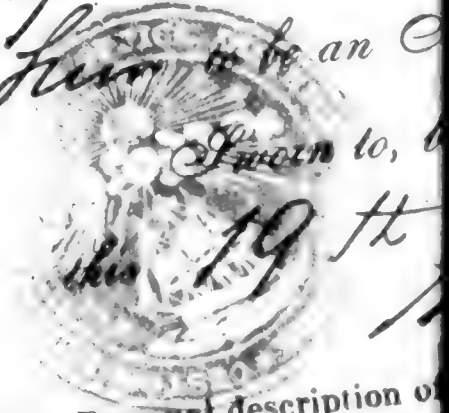 him to be an
Sworn to,
this 19th
description